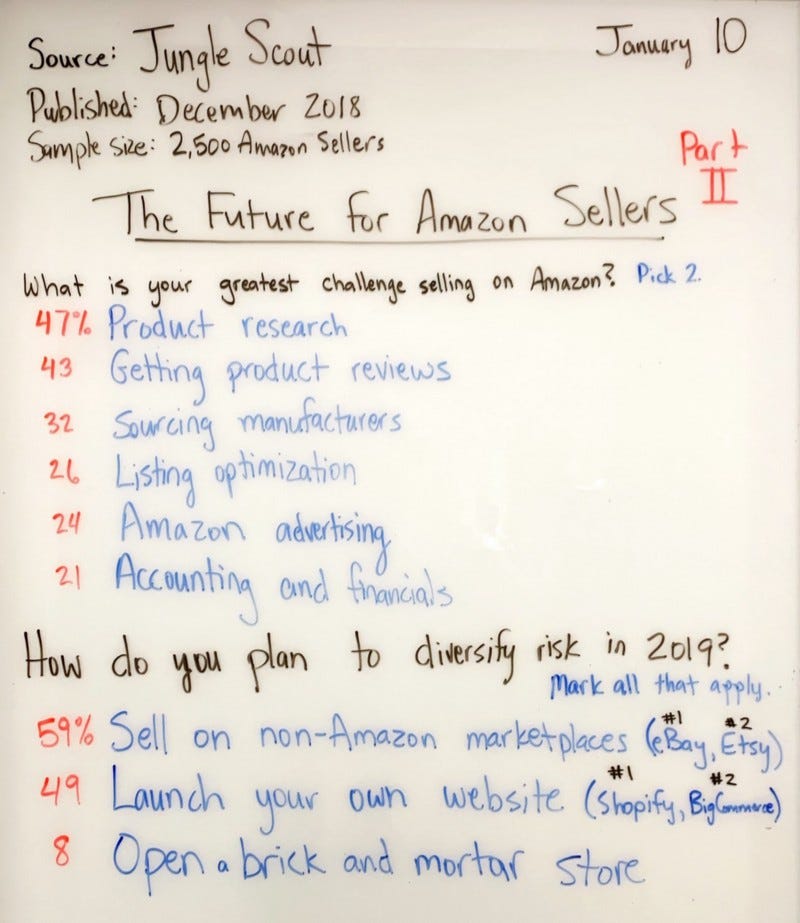 Source: Jungle Scout
January 10
Published: December 2018
Sample size: 2,500 Amazon Sellers
Part
II
The Future for Amazon Sellers
What is your greatest challenge selling on Amazon? Pick 2.
47% Product research
43 Getting product reviews
32 Sourcing manufacturers
26 Listing optimization
24 Amazon advertising
21 Accounting and financials
How do you plan to diversify risk in 2019?
Mark all that apply.
#1 #2
59% Sell on non-Amazon marketplaces (eBay, Etsy)
#1 #2
49 Launch your own website (Shopify, BigCommerce)
8 Open a brick and mortar store